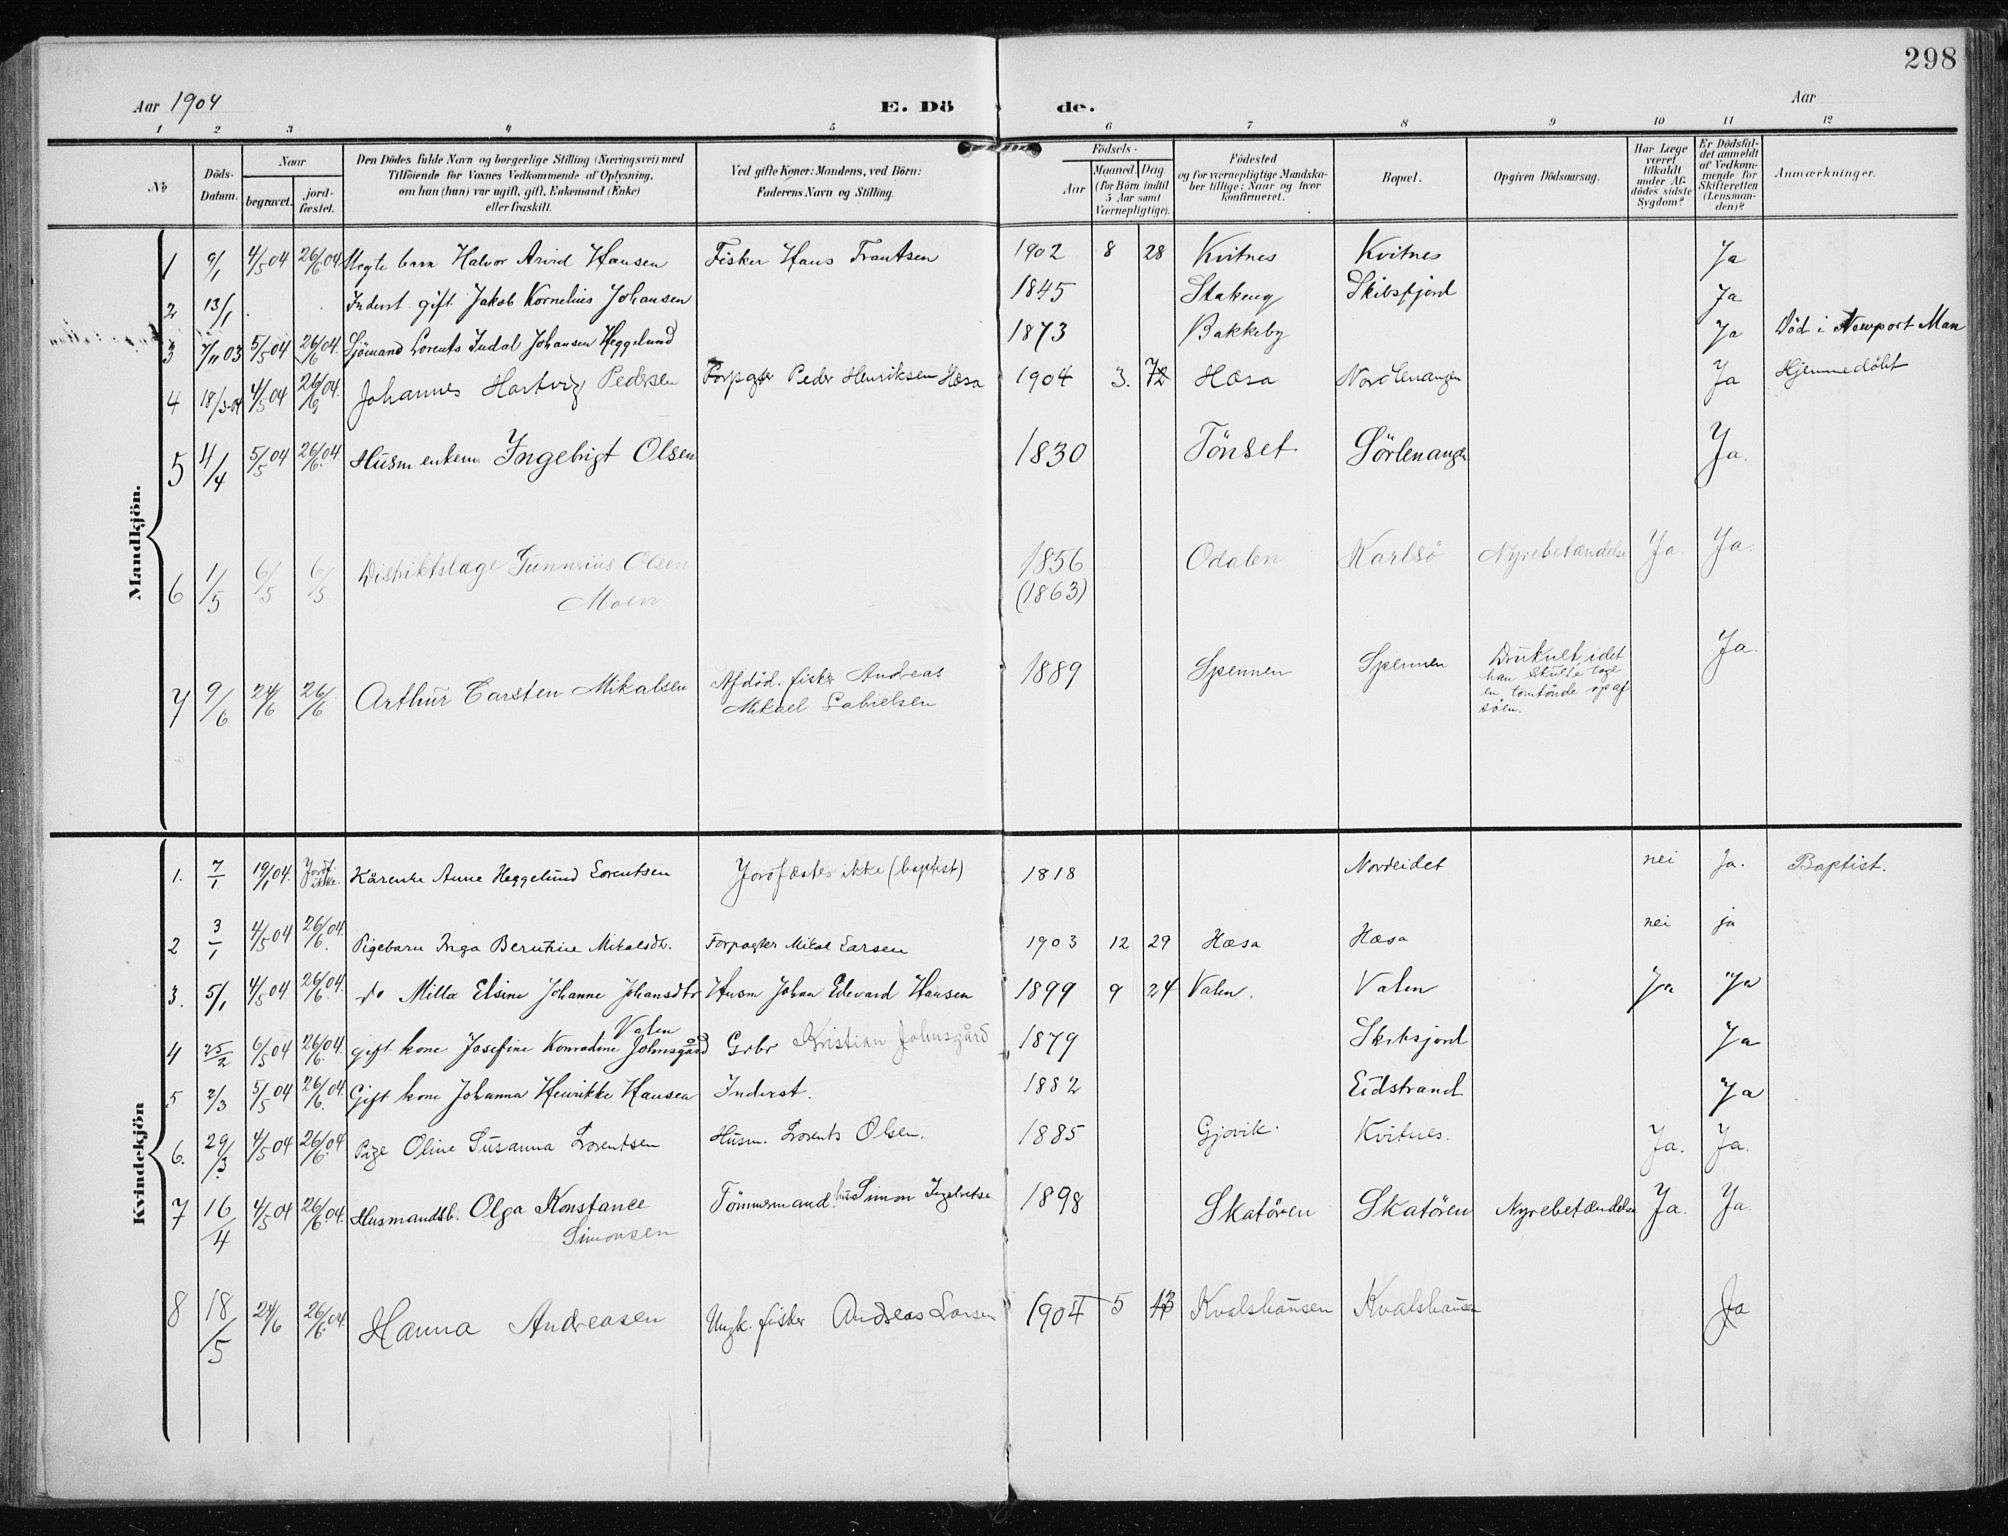 298
Aar 1904
E. Dö de.
Aar
1 2 3 4 5 6 7 8 9 10 11 12
No
Döds-Datum.
Naar
begravet.
jord-fæstet.
Den Dödes fulde Navn og borgerlige Stilling (Næringsvei) med
Tilföiende for Voxnes Vedkommende af Oplysning,
om han (hun) var ugift, gift, Enkemand (Enke)
eller fraskilt.
Ved gifte Koner: Mandens, ved Börn:
Faderens Navn og Stilling.
Födsels-
Aar
Maaned. Dag
(for Börn indtil
5 Aar samt
Værnepligtige).
Födested
og for værnepligtige Mandska-
ber tillige: Naar og hvor
konfirmeret.
Bopæl.
Opgiven Dödsaarsag.
Har Læge
været
tilkaldt
under Af-
dödes sidste
Sygdom?
Er Dödsfal-
det anmeldt
af Vedkom-
mende for
Skifteretten
(Lensman-
den)?
Anmærkninger.
Mandkjön.
1 9/1 4/5 04 26/6 04 Uegte barn Halvor Arvid Hansen Fisker Hans Frantsen 1902 8 28 Kvitnes Kvitnes Ja
2 13/1 Inderst gift Jakob Kornelius Johansen 1845 Stakeng Skibsfjord Ja
3 7/11 03 5/5 04 26/6 04. Sjömand Lorents Indal Johansen Heggelund 1873 Bakkeby Ja Död i Newport Man
4 18/3-04 4/5 04 26/6 04. Johannes Hartvig Pedersen Forpagter Peder Henriksen Hæsa 1904 3. Hæsa Nordlenangen Ja Hjemmedøbt
5 4/4 5/5 04 26/6 04. Husm enkem Ingebrigt Olsen 1830 Tönset Sörlenangen Ja.
6 1/5 6/5 6/5 Distriktslæge Gunnerius Olsen 1856 Odalen Karlsö Nyrebetændelse Ja. Ja.
Moen (1863)
7 9/6 24/6 26/6 Arthur Carsten Mikalsen Afdöd. fisker Andreas 1889 Spennen Spennen Druknet, idet Ja.
Mikael Gabrielsen han skulde tage
en tomtönde op af
söen.
Kvindekjön
1. 7/1 19/1 04. Jordf. ikke. Kårenke Anne Heggelund Lorentsen Jordfæstes ikke (baptist) 1818 Nordeidet nei Ja. Baptist.
2 3/1 4/5 04 26/6 04. Pigebarn Inga Berntine Mikalsdtr. Forpagter Mikal Larsen 1903 12 29 Hæsa Hæsa nei ja
3. 5/1 4/5 04 26/6 04. do Milla Elsine Johanne Johansdtr Husm Johan Edevard Hansen 1899 9 24 Valen. Valen Ja Ja
Valen
4 25/2 6/5 04 26/6 04. gift kone Josefine Konradine Johnsgård Grbr Kristian Johnsgård 1879 Skibsfjord Ja
5 2/3 5/5 04 26/6 04. Gift kone Johanna Henrikke Hansen Inderst. 1882 Eidstrand Ja
6. 29/3 4/5 04 26/6 04. Pige Oline Susanna Lorentsen Husm. Lorents Olsen. 1885 Gjøvik. Kvitnes. Ja. Ja.
7 16/4 4/5 04 26/6 04. Husmandsb. Olga Konstance Tömmermand. hus Simon 1898 Skatören Skatören Nyrebetændelse Ja. Ja.
Simonsen
8 18/5 24/6 26/6 04 Hanna Andreasen Ungk. fisker Andreas Larsen 1904 5 13 Kvalshausen Kvalshausen Ja